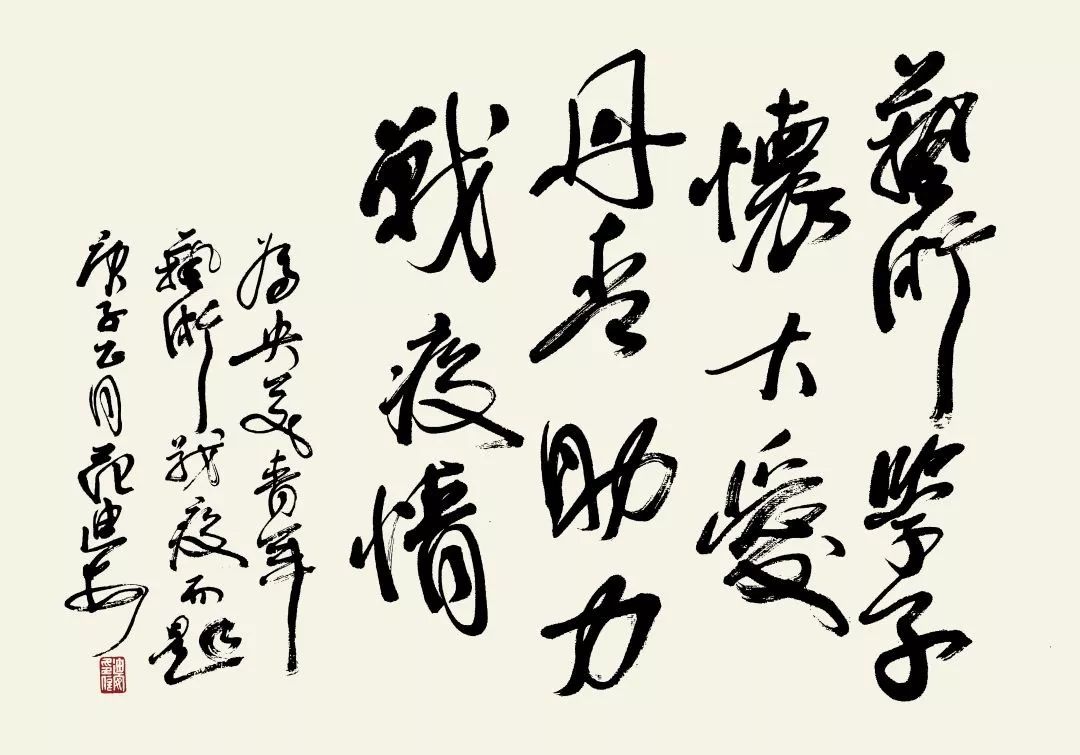 藝術學子
懷大愛
丹青助力
戰疫情
為央美青年
藝術戰疫而題
庚子正月范迪安